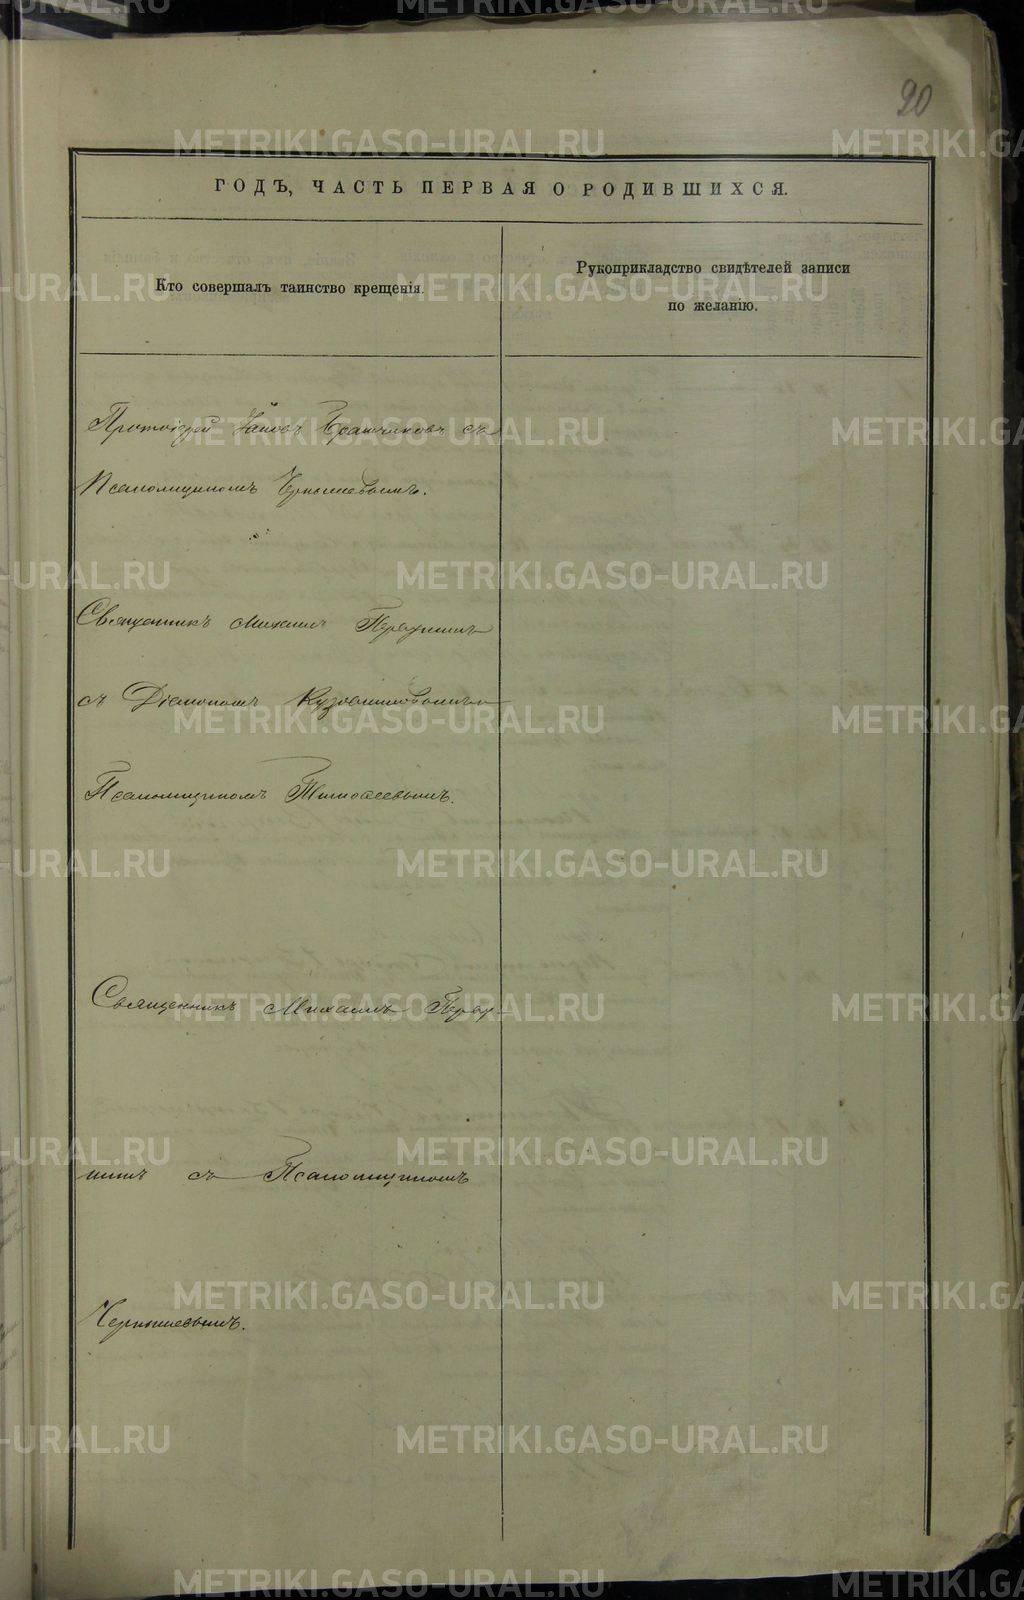 METRIKI.GASO-URAL.RU
20
ГОДЪ, ЧАСТЬ ПЕРВАЯ О РОДИВШИХСЯ.
Кто совершалъ таинство крещенія.
Рукоприкладство свидѣтелей записи
по желанію.
Протоіерей Іаковъ съ
Псаломщикомъ Чернышевымъ.
Священникъ Михаилъ
съ Діакономъ Кузовниковымъ
Псаломщикомъ Тимофеевымъ.
Священникъ Михаилъ
съ Псаломщикомъ
Чернышевымъ.